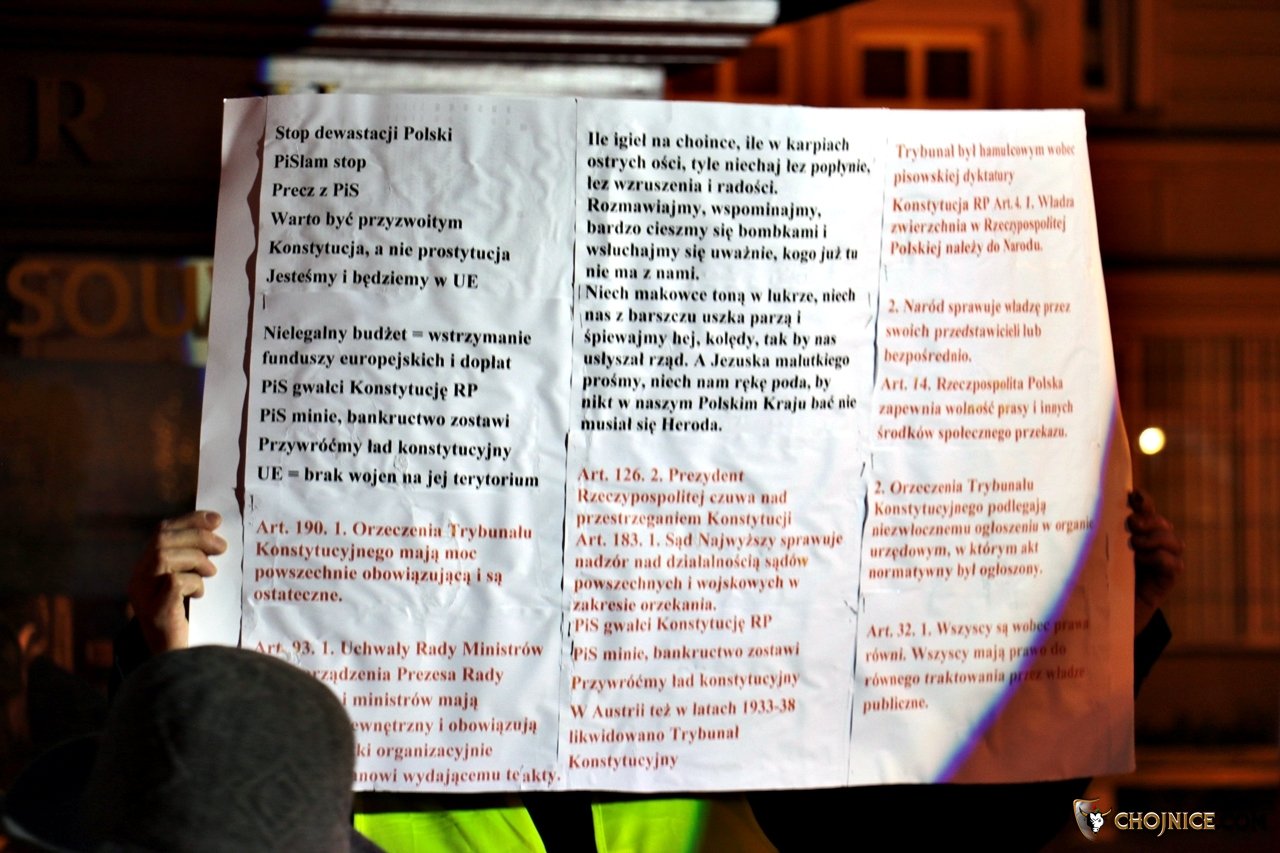 R
SOU
Stop dewastacji Polski
PiSlam stop
Precz z PiS
Warto być przyzwoitym
Konstytucja, a nie prostytucja
Jesteśmy i będziemy w UE
Nielegalny budżet = wstrzymanie
funduszy europejskich i dopłat
PiS gwałci Konstytucję RP
PiS minie, bankructwo zostawi
Przywróćmy ład konstytucyjny
UE = brak wojen na jej terytorium
Art. 190. 1. Orzeczenia Trybunału
Konstytucyjnego mają moc
powszechnie obowiązującą i są
ostateczne.
Art. 93. 1. Uchwały Rady Ministrów
rządzenia Prezesa Rady
i ministrów mają
ewnętrzny i obowiązują
ki organizacyjnie
anowi wydającemu te akty.
Ile igieł na choince, ile w karpiach
ostrych ości, tyle niechaj łez popłynie,
łez wzruszenia i radości.
Rozmawiajmy, wspominajmy,
bardzo cieszmy się bombkami i
wsłuchajmy się uważnie, kogo już tu
nie ma z nami.
Niech makowce toną w lukrze, niech
nas z barszczu uszka parzą i
śpiewajmy hej, kolędy, tak by nas
usłyszał rząd. A Jezuska malutkiego
prośmy, niech nam rękę poda, by
nikt w naszym Polskim Kraju bać nie
musiał się Heroda.
Art. 126. 2. Prezydent
Rzeczypospolitej czuwa nad
przestrzeganiem Konstytucji
Art. 183. 1. Sąd Najwyższy sprawuje
nadzór nad działalnością sądów
powszechnych i wojskowych w
zakresie orzekania.
PiS gwałci Konstytucję RP
PiS minie, bankructwo zostawi
Przywróćmy ład konstytucyjny
W Austrii też w latach 1933-38
likwidowano Trybunał
Konstytucyjny
Trybunał był hamulcowym wobec
pisowskiej dyktatury
Konstytucja RP Art. 4. 1. Władza
zwierzchnia w Rzeczypospolitej
Polskiej należy do Narodu.
2. Naród sprawuje władzę przez
swoich przedstawicieli lub
bezpośrednio.
Art. 14. Rzeczpospolita Polska
zapewnia wolność prasy i innych
środków społecznego przekazu.
2. Orzeczenia Trybunału
Konstytucyjnego podlegają
niezwłocznemu ogłoszeniu w organie
urzędowym, w którym akt
normatywny był ogłoszony.
Art. 32. 1. Wszyscy są wobec prawa
równi. Wszyscy mają prawo do
równego traktowania przez władze
publiczne.
CHOJNICE.COM